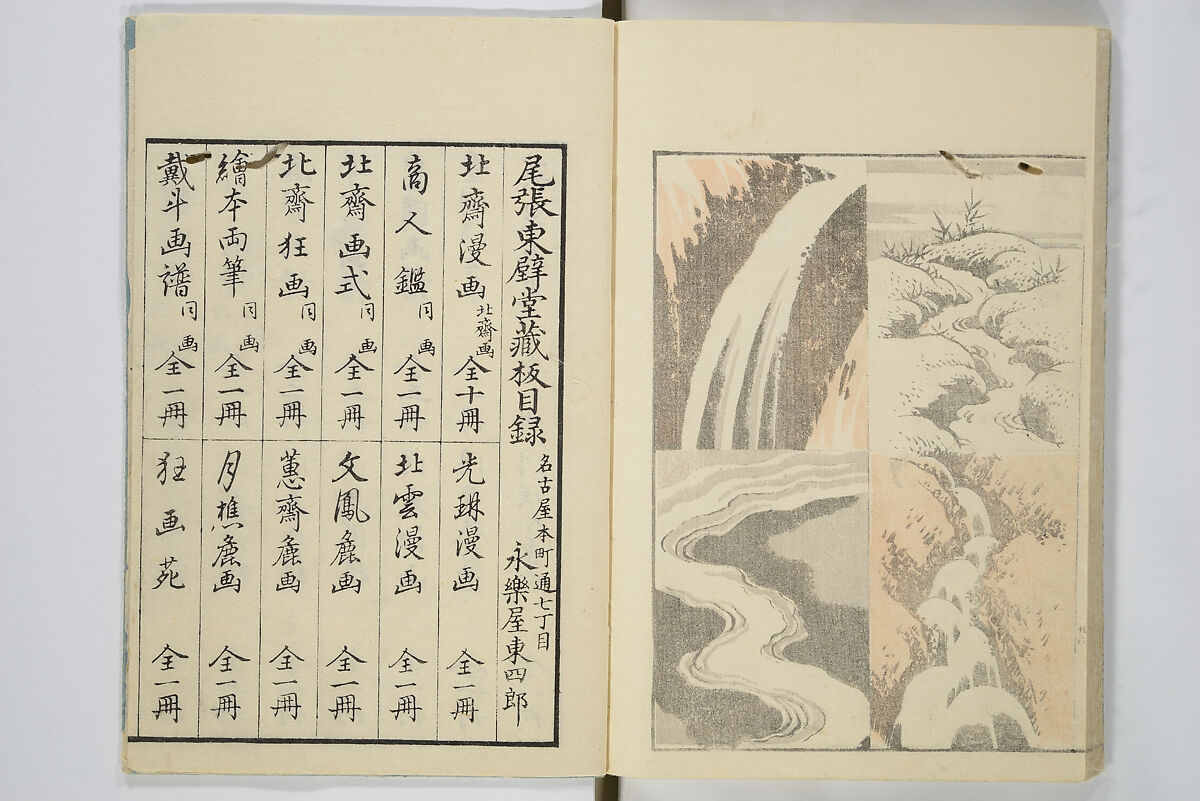 尾張東壁堂藏板目録
名古屋本町通七丁目
永樂屋東四郎
北齋漫画 北齋画 全十冊
高人鑑 同画 全一冊
北齋画式 同画 全一冊
北齋狂画 同画 全一冊
繪本両筆 同画 全一冊
戴斗画譜 同画 全一冊
光琳漫画 全一冊
北雲漫画 全一冊
文鳳麁画 全一冊
蕙齋麁画 全一冊
月樵麁画 全一冊
狂画苑 全一冊